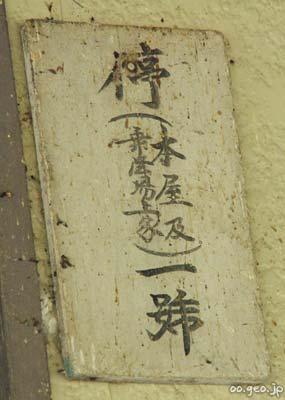 停
(本屋及
乗降場上家)
一號
oo.geo.jp